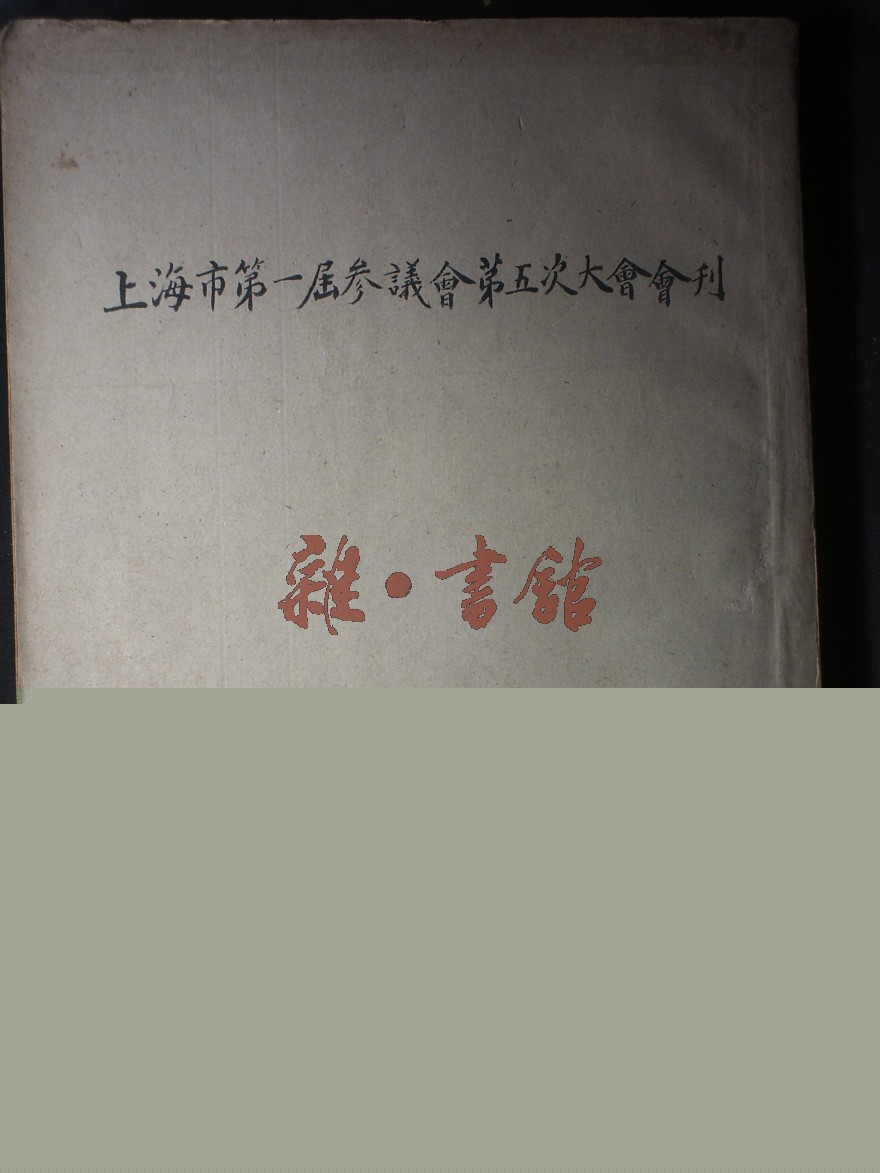 上海市第一届参議會第五次大會會刊
雜·書館